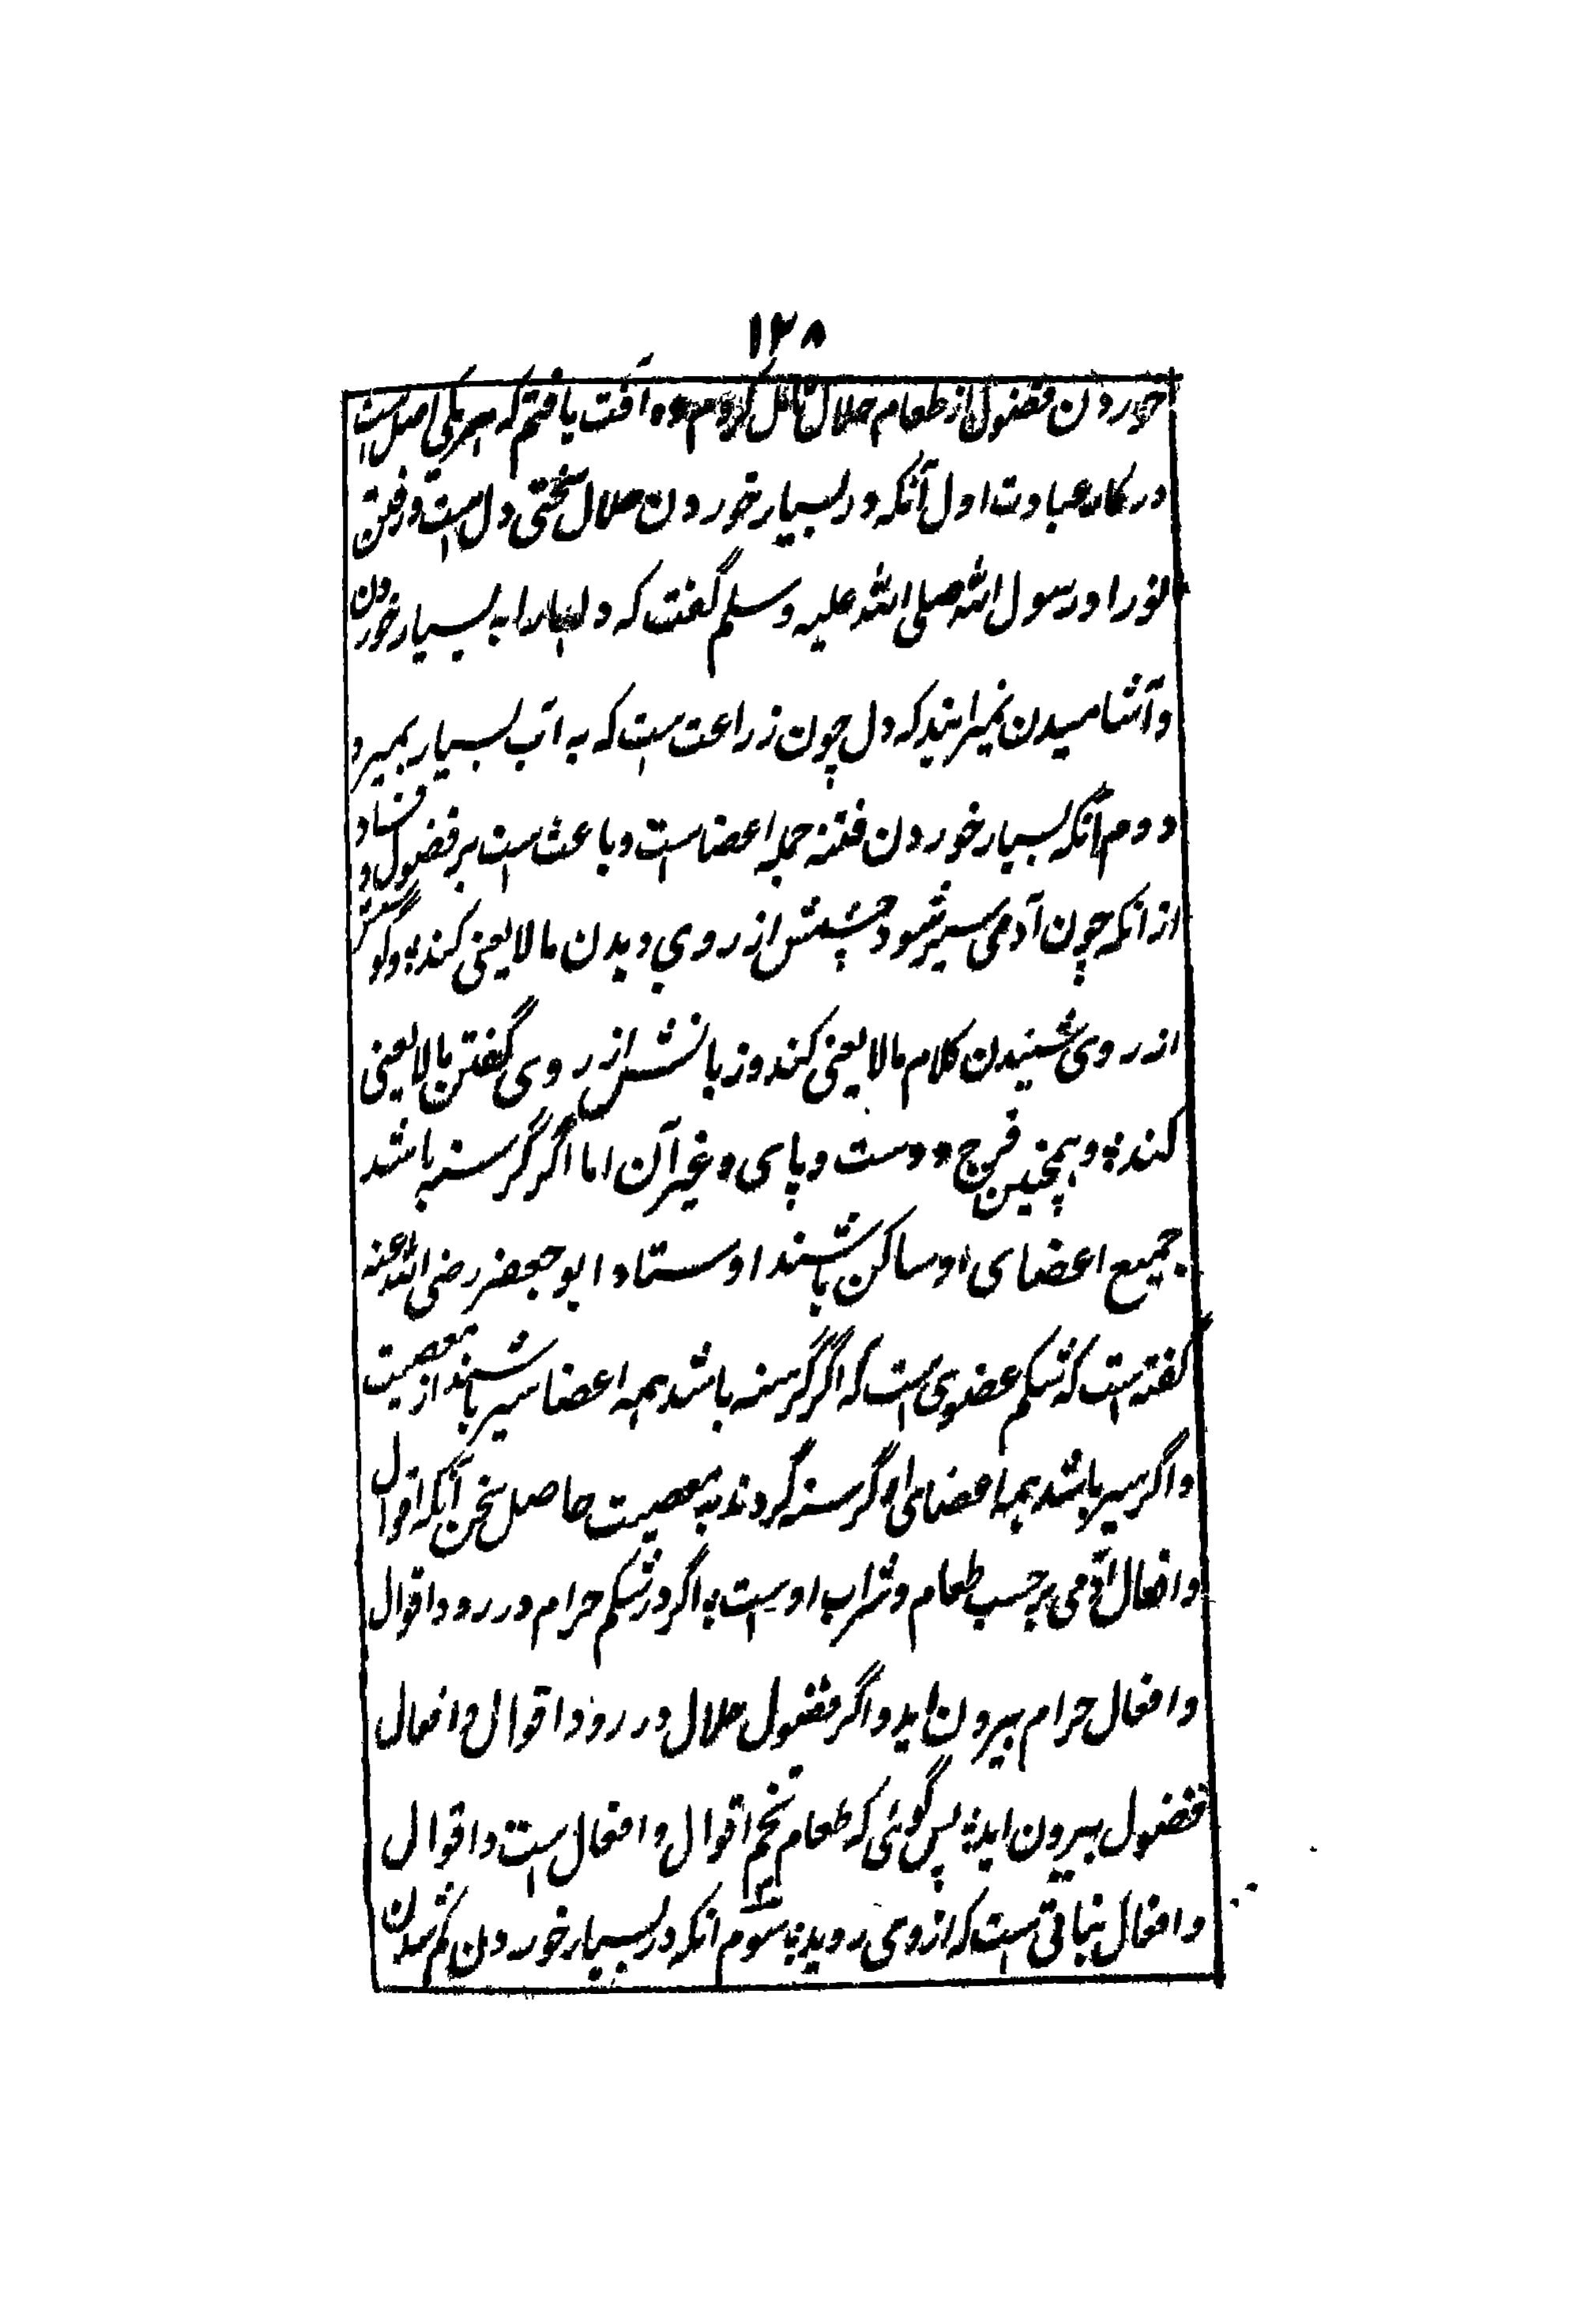 ۱۲۸
خوردن فضول از طعام حلال تامل کردم ده آفت یافتم که هر یکی اصل است
در کار عبادت اول آنکه در بسیار خوردن حلال سختی دل است و رفتن
نور او رسول الله صلی الله علیه وسلم گفت که دلها را به بسیار خوردن
و آشامیدن نمیرانید که دل چون زراعت است که به آب بسیار بمیرد
دوم آنکه بسیار خوردن فتنه جمله اعضا است و باعث است بر فضول و فساد
از انکه چون آدمی سیر شود چشمش از روی دیدن مالایعنی کند و گوشش
از روی شنیدن کلام مالایعنی کند و زبانش از روی گفتن مالایعنی
کند و همچنین فرج و دست و پای و غیر آن اما اگر گرسنه باشد
جمیع اعضای او ساکن باشند اوستاد ابو جعفر رضی الله عنه
گفته است که شکم عضوی است که اگر گرسنه باشد همه اعضا سیر باشند از معصیت
و اگر سیر باشد همه اعضای او گرسنه گردند به معصیت حاصل سخن آنکه اقوال
و افعال آدمی برحسب طعام و شراب اوست اگر در شکم حرام در رود اقوال
و افعال حرام بیرون اید و اگر فضول حلال در رود اقوال و افعال
فضول بیرون اید پس گوئی که طعام تخم اقوال و افعال است و اقوال
و افعال نباتی است که از وی روید سوم انکه در بسیار خوردن کم شدن